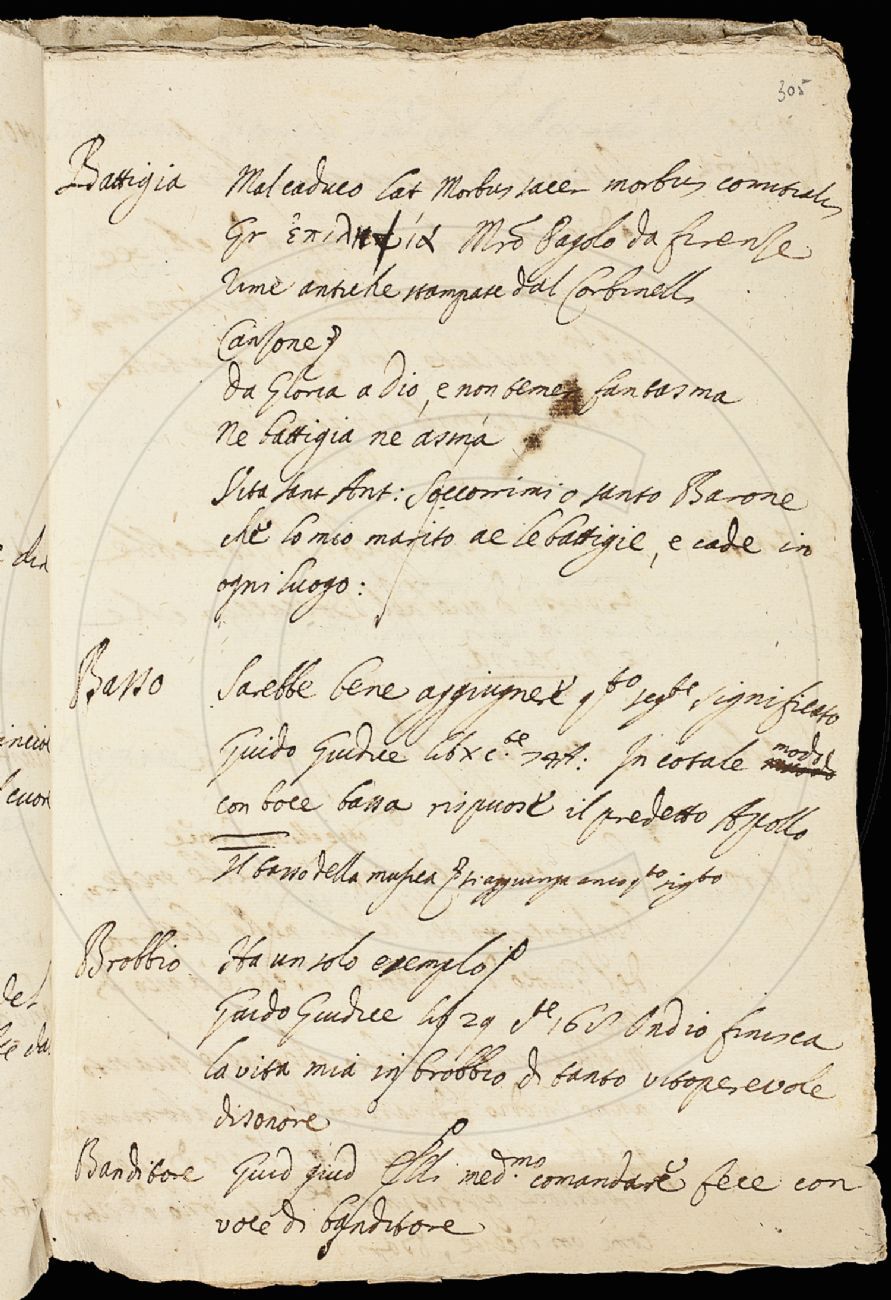 305
Battigia Mal caduco Lat Morbus sacer morbus comitialis
Gr ἐπιληψία Mrõ Pagolo da firense
Rime antiche stampate dal Corbinelli
Cansone
da Gloria a Dio, e non temer fantasma
Ne battigia ne asma
Vita sant Ant: Soccorrimi o santo Barone
che lo mio marito ae le battigie, e cade in
ogni luogo:
Basso Sarebbe bene aggiugnere qto segte significato
Guido Giudice lib x cte 74: In cotale modo
con boce bassa rispuose il predetto Apollo
Il basso della musica si aggiunga anco qto
Brobbio Ha un solo esemplo
Guido Giudice 29 168 Ond io finisca
la vita mia in brobbio di tanto vitoperevole
disonore
Banditore Guid giud Elli medmo comandare fece con
voce di banditore
de